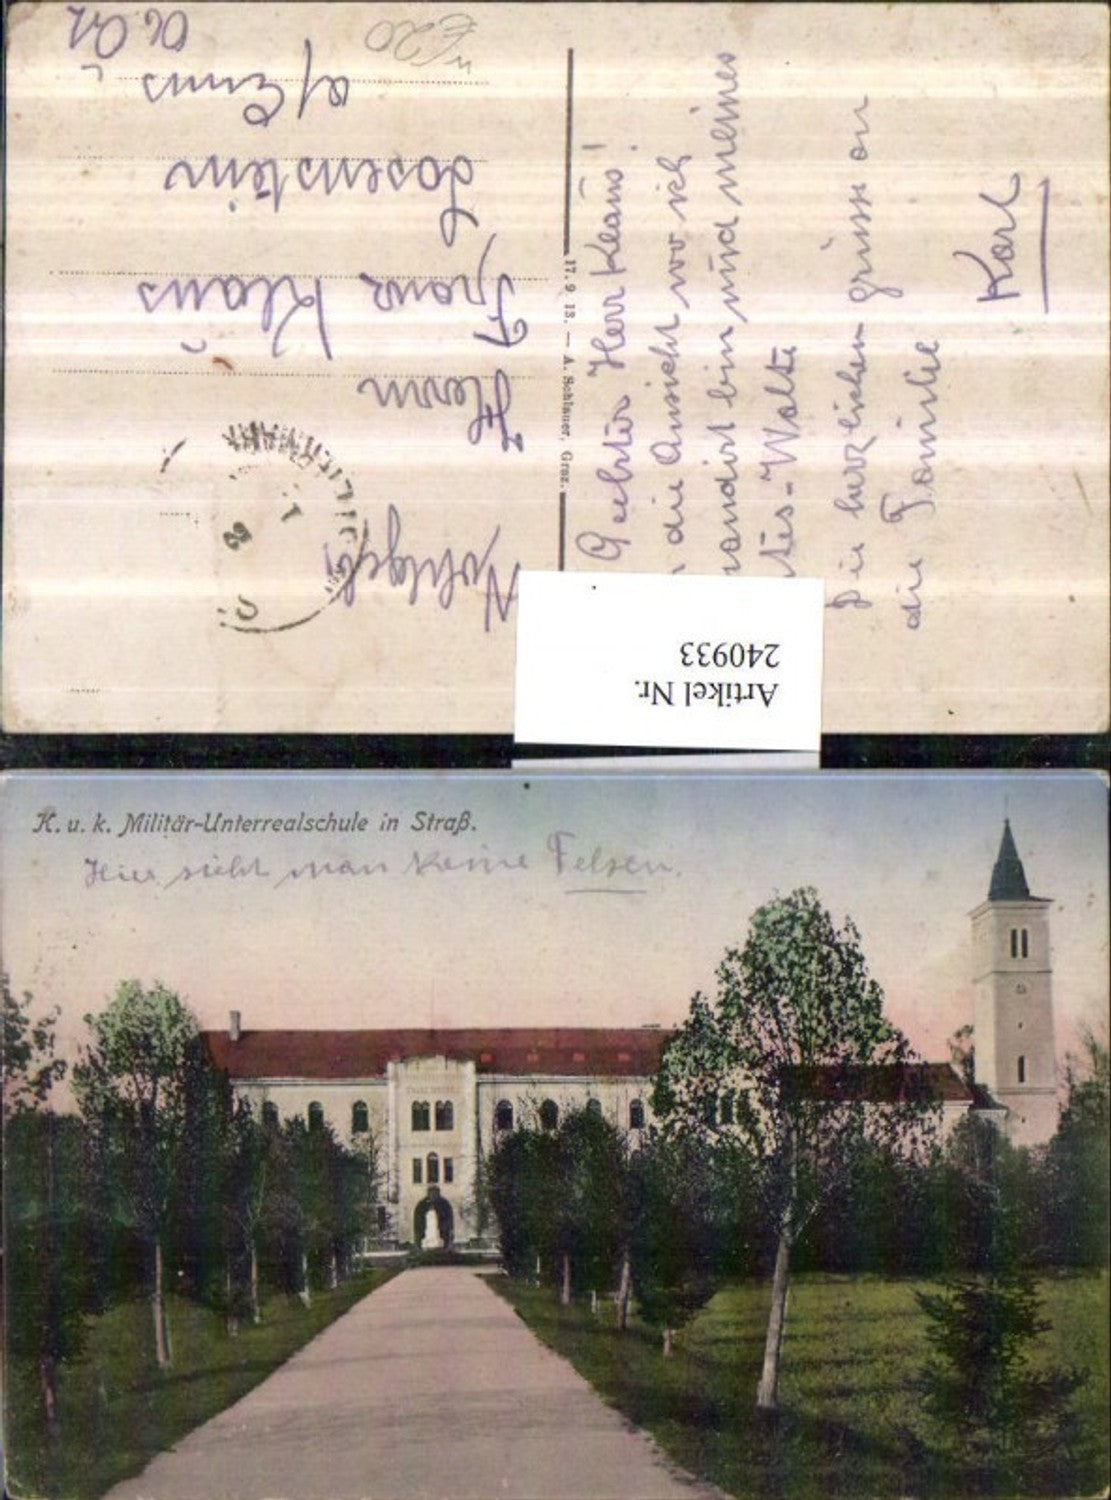 Wohlgeb.
Herrn
Franz Klaus
Losenstein
a/ Enns
O. Öst
17. 9. 13. — A. Schlauer, Graz.
Geehrter Herr Klaus!
die Ansicht wo ich
bin und meines
Die herzlichen Grüsse an
die Familie
Karl
Artikel Nr.
240933
K. u. k. Militär-Unterrealschule in Straß.
Hier sieht man keine Felsen.